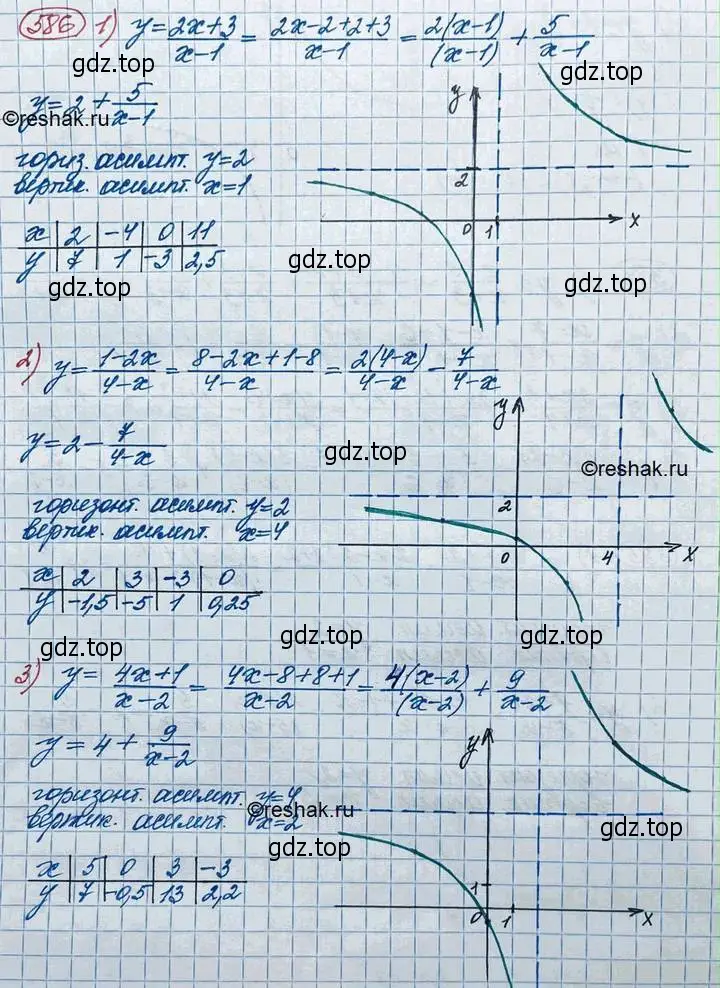 586 1) y = 2x+3 / x-1 = 2x-2+2+3 / x-1 = 2(x-1) / (x-1) + 5 / x-1
gdz.top gdz.top
y = 2 + 5 / x-1
©reshak.ru
гориз. асимпт. y=2
вертик. асимпт. x=1
y 2 0 1 x
x | 2 | -4 | 0 | 11
y | 7 | 1 | -3 | 2,5
gdz.top gdz.top gdz.top
2) y = 1-2x / 4-x = 8-2x+1-8 / 4-x = 2(4-x) / 4-x - 7 / 4-x
y = 2 - 7 / 4-x
gdz.top gdz.top
©reshak.ru
горизонт. асимпт. y=2
вертик. асимпт. x=4
y 2 0 4 x
x | 2 | 3 | -3 | 0
y | -1,5 | -5 | 1 | 0,25
gdz.top gdz.top gdz.top
3) y = 4x+1 / x-2 = 4x-8+8+1 / x-2 = 4(x-2) / (x-2) + 9 / x-2
y = 4 + 9 / x-2
горизонт. асимпт. y=4
вертик. асимпт. x=2
©reshak.ru
gdz.top gdz.top gdz.top
y 1 0 1 x
x | 5 | 0 | 3 | -3
y | 7 | -0,5 | 13 | 2,2